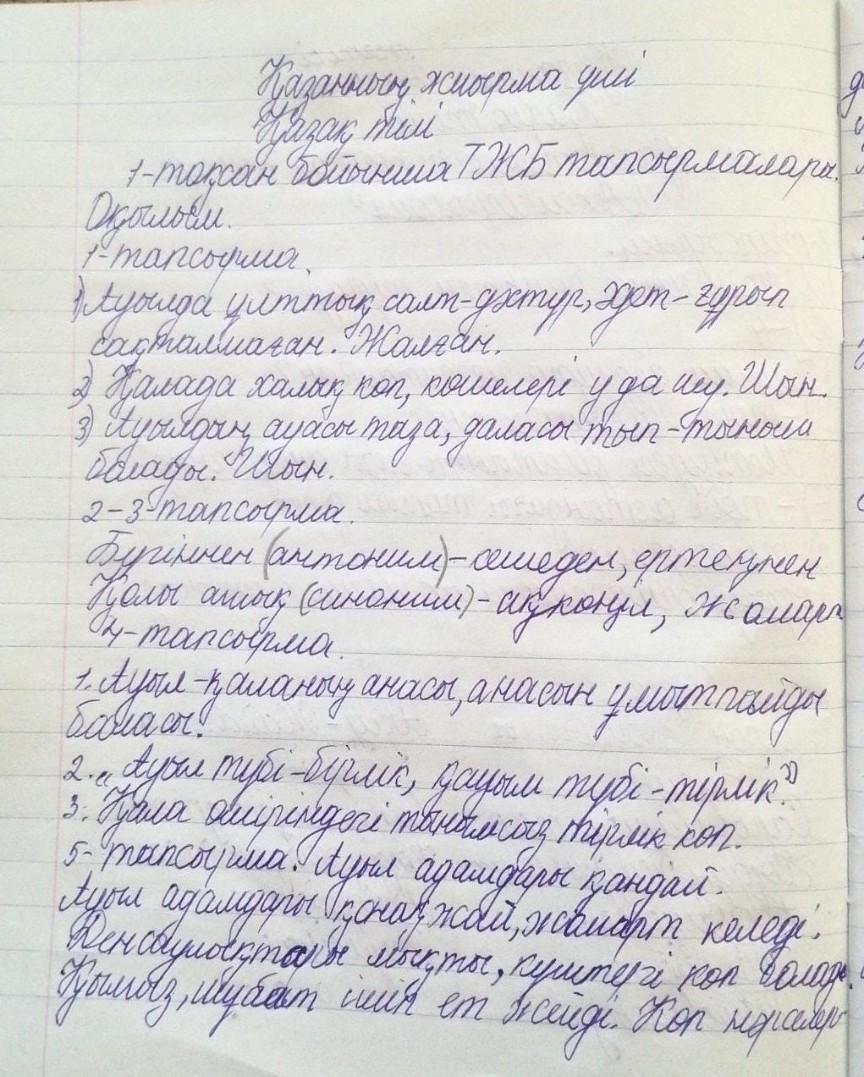 Қазанның жиырма үші
Қазақ тілі
1-тоқсан бойынша ТЖБ тапсырмалары.
Оқылым.
1-тапсырма.
1) Ауылда ұлттық салт-дәстүр, әдет-ғұрып
сақталмаған. Жалған.
2) Қалада халық көп, көшелері у да шу. Шын.
3) Ауылдың ауасы таза, даласы тып-тыныш
болады. Шын.
2-3-тапсырма.
Бүгіннен (антоним)-кешеден, ертеңнен
Қолы ашық (синоним)-ақкөңіл, Жомарт
4-тапсырма.
1. Ауыл-қаланың анасы, анасын ұмытпайды
баласы.
2. „Ауыл түбі-бірлік, қауым түбі-тірлік."
3. Қала өміріндегі тынымсыз тірлік көп.
5-тапсырма. Ауыл адамдары қандай.
Ауыл адамдары қонақжай, жомарт келеді.
Денсаулықтары мықты, күштері көп болады.
Қымыз, шұбат ішіп ет жейді. Көп нәрселер